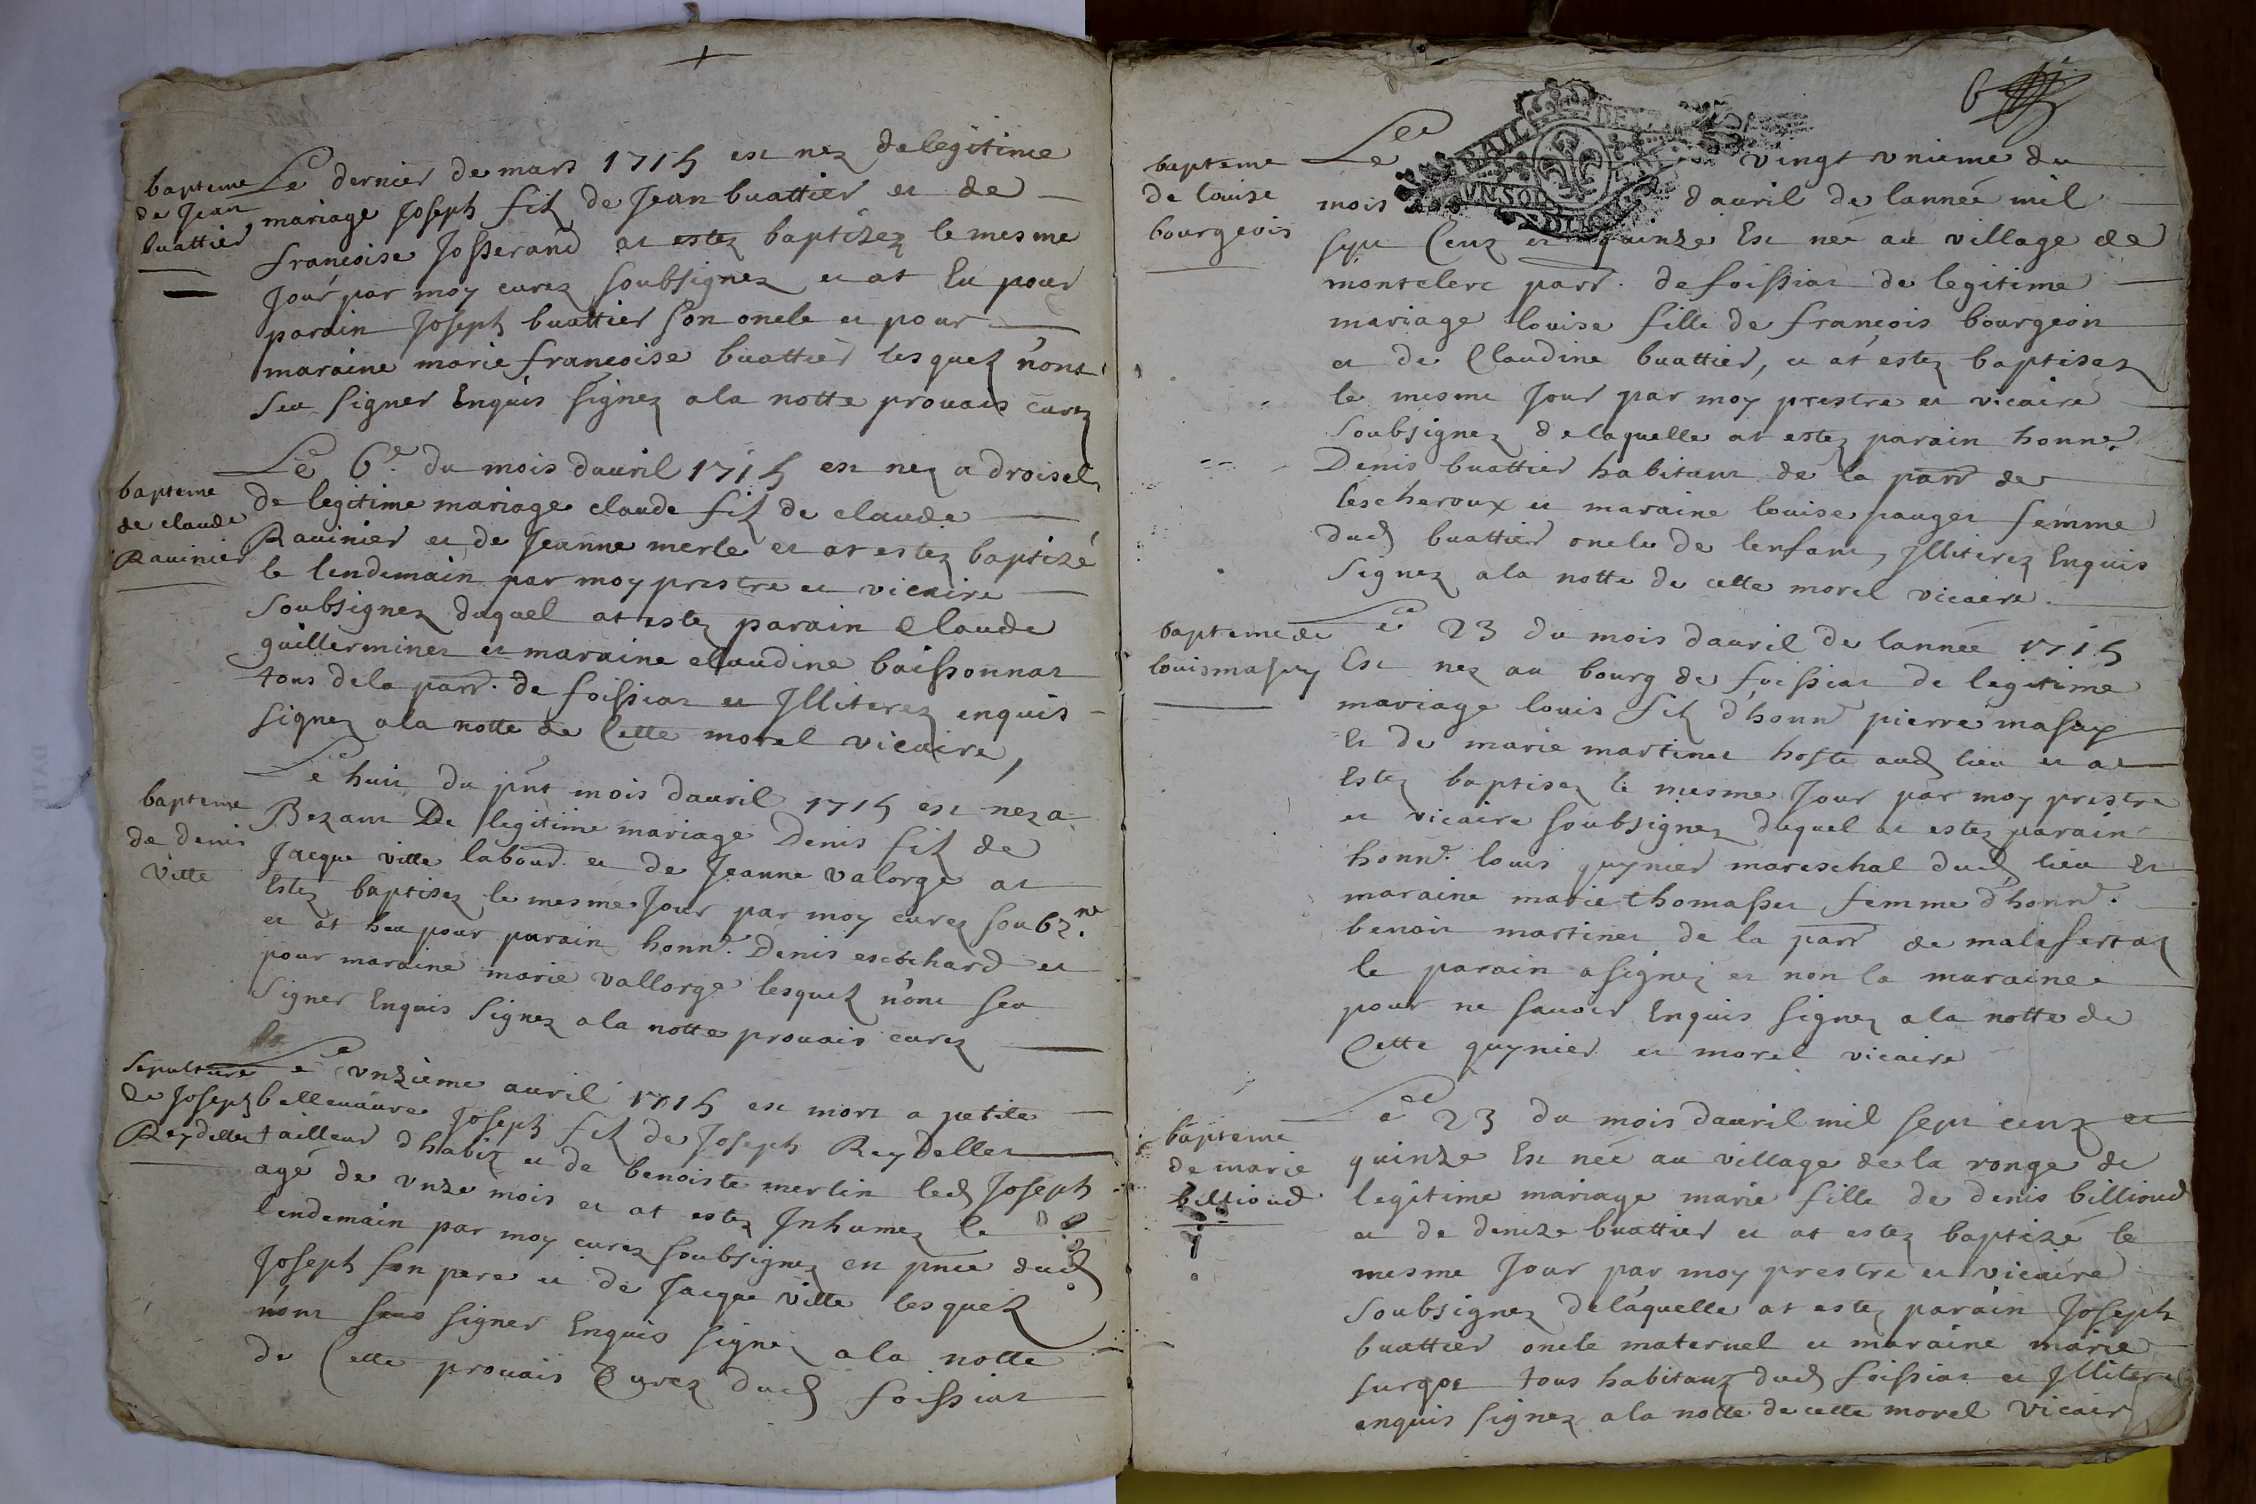 Le dernier de mars 1715 est nez de legitime
bapteme
de Jean
buattier
mariage Joseph fil de Jean buattier et de
francoise Josserand at estez baptisez le mesme
Jour par moy curez soubsignez et at Eu pour
parain Joseph buattier son oncle et pour
maraine marie francoise buattier lesquel n'ont
seu signer Enquis signez a la notte prouais curez
Le 6e du mois dauril 1715 est nez a droisel
bapteme
de claude
Rauinier
de legitime mariage claude fil de claude
Rauinier et de Jeanne merle et at estez baptizé
le lendemain par moy prestre et vicaire
soubsignez duquel at estez parain Claude
guillerminet et maraine claudine boissonnat
tous de la parr. de foissiat et Illiterez enquis
signez a la notte de Cette morel vicaire,
Le huit du pnt mois dauril 1715 est nez a
bapteme
de denis
ville
Bezant De legitime mariage Denis fil de
Jacque ville labour. et de Jeanne valorge at
Estez baptisez le mesme Jour par moy curez soubz.ne
et at heu pour parain honn. Denis escochard et
pour maraine marie vallorge lesquel n'ont seu
signer Enquis signez a la notte prouais curez
sepulture
de Joseph
Reydellet
Le vnzieme auril 1715 est mort a petite
belleuaure Joseph fil de Joseph Reydellet
tailleur dhabit et de benoiste merlin led Joseph
agé de vnze mois et at estez Inhumez le
lendemain par moy curez soubsignez en pnce dud
Joseph son pere et de Jacque ville lesquel
n'ont seu signer Enquis signez a la notte
de Cette prouais Curez dud foissiat
6
bapteme
de louise
bourgeois
Le vingt vnieme du
mois dauril de lannée mil
sept Cent et quinze Est née au village de
montclerc parr. de foissiat de legitime
mariage louise fille de françois bourgeon
et de Claudine buattier, et at estez baptisez
le mesme Jour par moy prestre et vicaire
soubsignez de laquelle at estez parain honne.
Denis buattier habitant de la parr de
lescheroux et maraine louise pauget femme
dud buattier oncle de lenfant, Illiterez Enquis
signez a la notte de cette morel vicaire.
bapteme de
louis masuy
Le 23 du mois dauril de lannée 1715
Est nez au bourg de foissiat de legitime
mariage louis fil d'honn. pierre masuy
Et de marie martinet hoste aud lieu et at
Estez baptisez le mesme Jour par moy prestre
et vicaire soubsignez duquel at estez parain
honn. louis guynier mareschal dud lieu Et
maraine marie thomasset femme d'honn.
benoit martinet de la parr de malafertaz
le parain a signez et non la maraine
pour ne sauoir Enquis signez a la notte de
Cette guynier et morel vicaire
bapteme
de marie
billioud
Le 23 du mois dauril mil sept cent et
quinze Est née au village de la ronge de
legitime mariage marie fille de denis billioud
et de denize buattier et at estez baptizé le
mesme Jour par moy prestre et vicaire
soubsignez de laquelle at estez parain Joseph
buattier oncle maternel et maraine marie
surget tous habitant dud foissiat et Illiterez
enquis signez a la notte de cette morel vicair